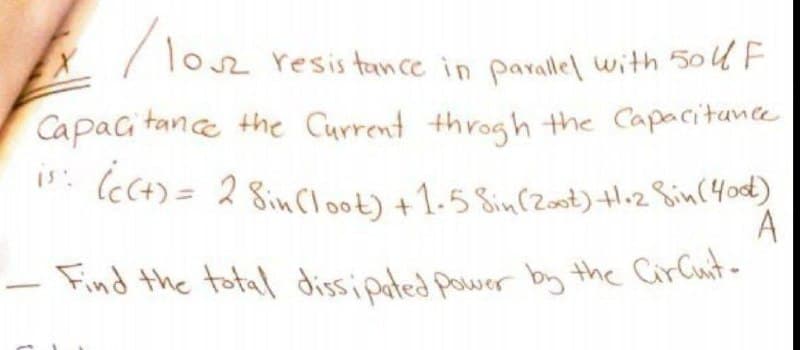 Ex / 10Ω resistance in parallel with 50µF
Capacitance the Current throgh the Capacitance
is: ic(t) = 2 Sin(100t) + 1.5 Sin(200t) + 1.2 Sin(400t) A
- Find the total dissipated power by the Circuit.